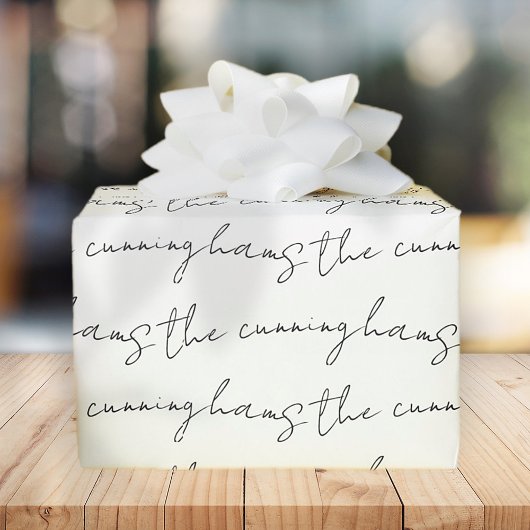 hams the cunninghams
cunninghams the cunn
hams the cunninghams
cunninghams the cunn